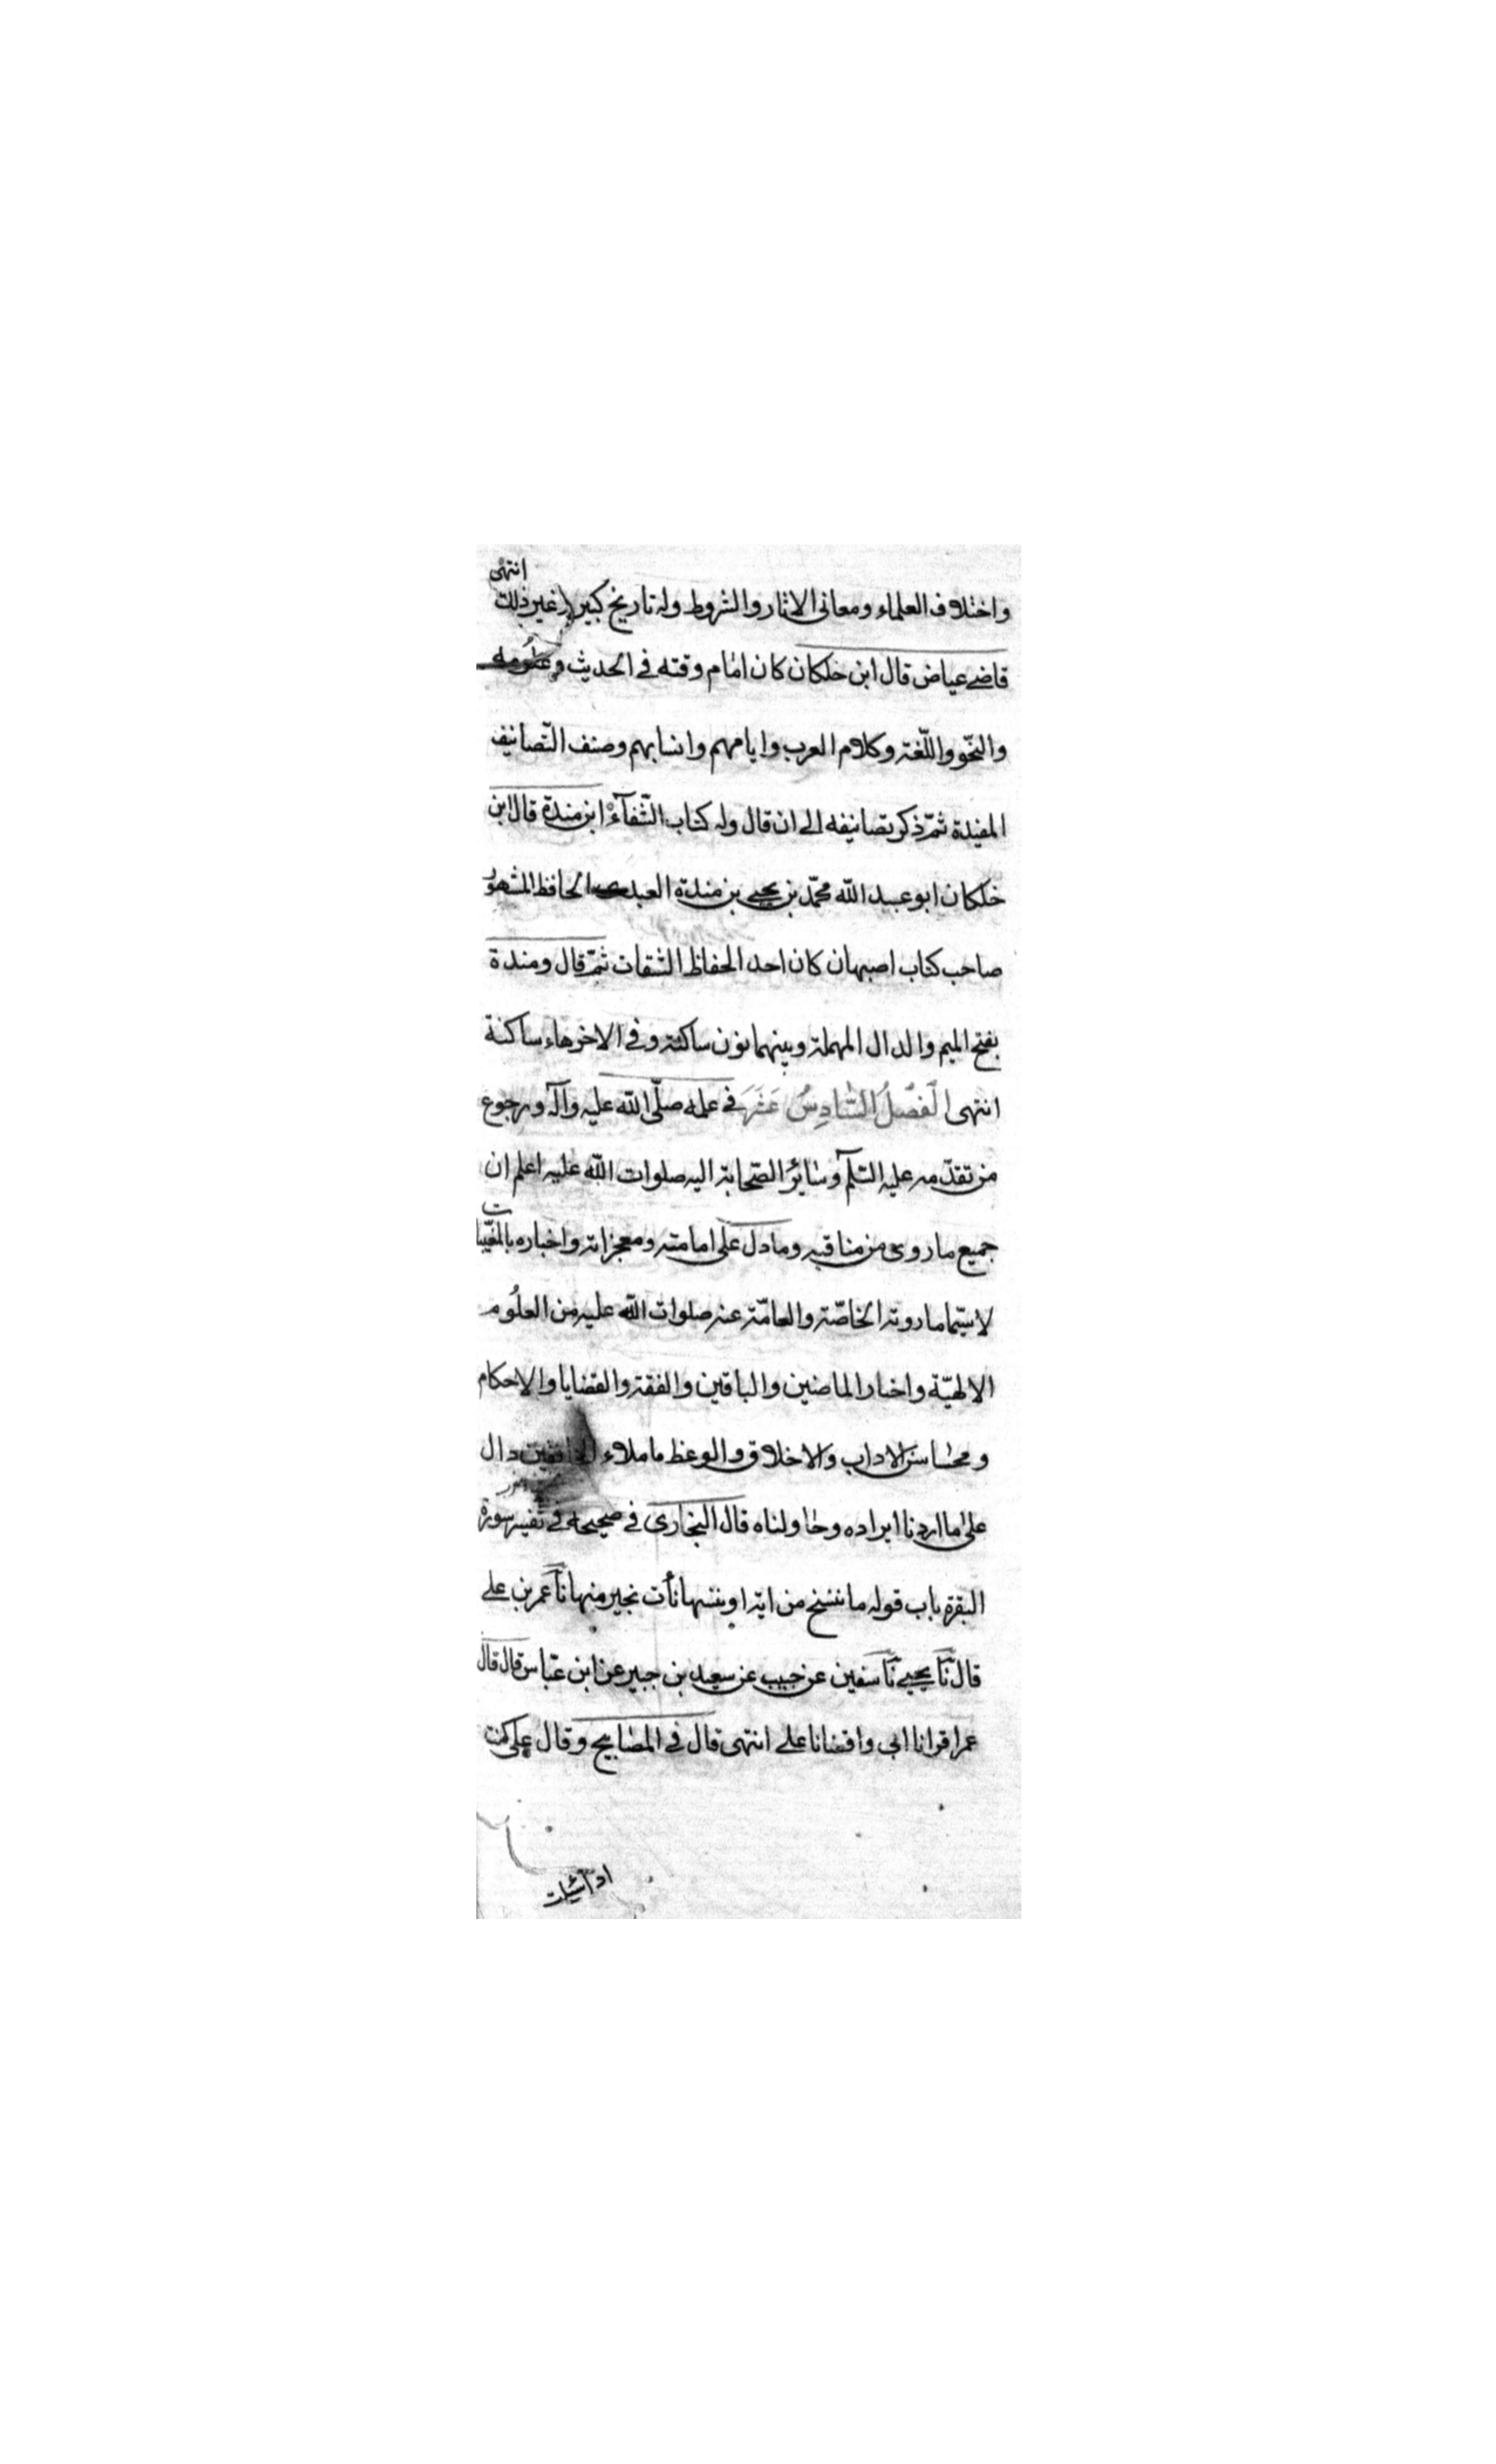 واختلاف العلماء ومعانى الاثار والشروط وله تاريخ كبير غير ذلك انتهى
قاضے عياض قال ابن خلكان كان امام وقته فے الحديث وعلومه
والنحو واللّغة وكلام العرب وايامهم وانسابهم وصنف التّصانيف
المفيدة ثمّ ذكر تصانيفه الے ان قال وله كتاب الشّفآء ابن مندة قال ابن
خلكان ابو عبد اللّه محمّد بن يحيے بن مندة العبدى الحافظ المشهور
صاحب كتاب اصبهان كان احد الحفاظ الثقات ثمّ قال ومندة
بفتح الميم والدال المهملة وبينهما نون ساكنة وفے الاخر هاء ساكنة
انتهى الفَصْلُ السَّادِسُ عَشَرَ فے علمه صلّى اللّه عليه وآله ورجوع
من تقدّمه عليه السّلم وسائر الصّحابة اليه صلوات اللّه عليه اعلم ان
جميع ما روى من مناقبه وما دل على امامته ومعجزاته واخباره بالمغيّبات
لا سيّما ما روته الخاصّة والعامّة عنه صلوات اللّه عليه من العلُوم
الالهيّة واخبار الماضين والباقين والفقه والقضايا والاحكام
ومحاسن الاداب والاخلاق والوعظ ما ملاء الخافقين دال
على ما اردنا ايراده وحاولناه قال البخارى فے صحيحه فے تفسير سورة
البقرة باب قوله ما ننسخ من اية او ننسها نأت بخير منها نآ عمر بن علے
قال نآ يحيے نآ سفين عن حبيب عن سعيد بن جبير عن ابن عبّاس قال قال
عمر اقرانا ابى واقضانا علے انتهى قال فے المصابيح وقال على كنت